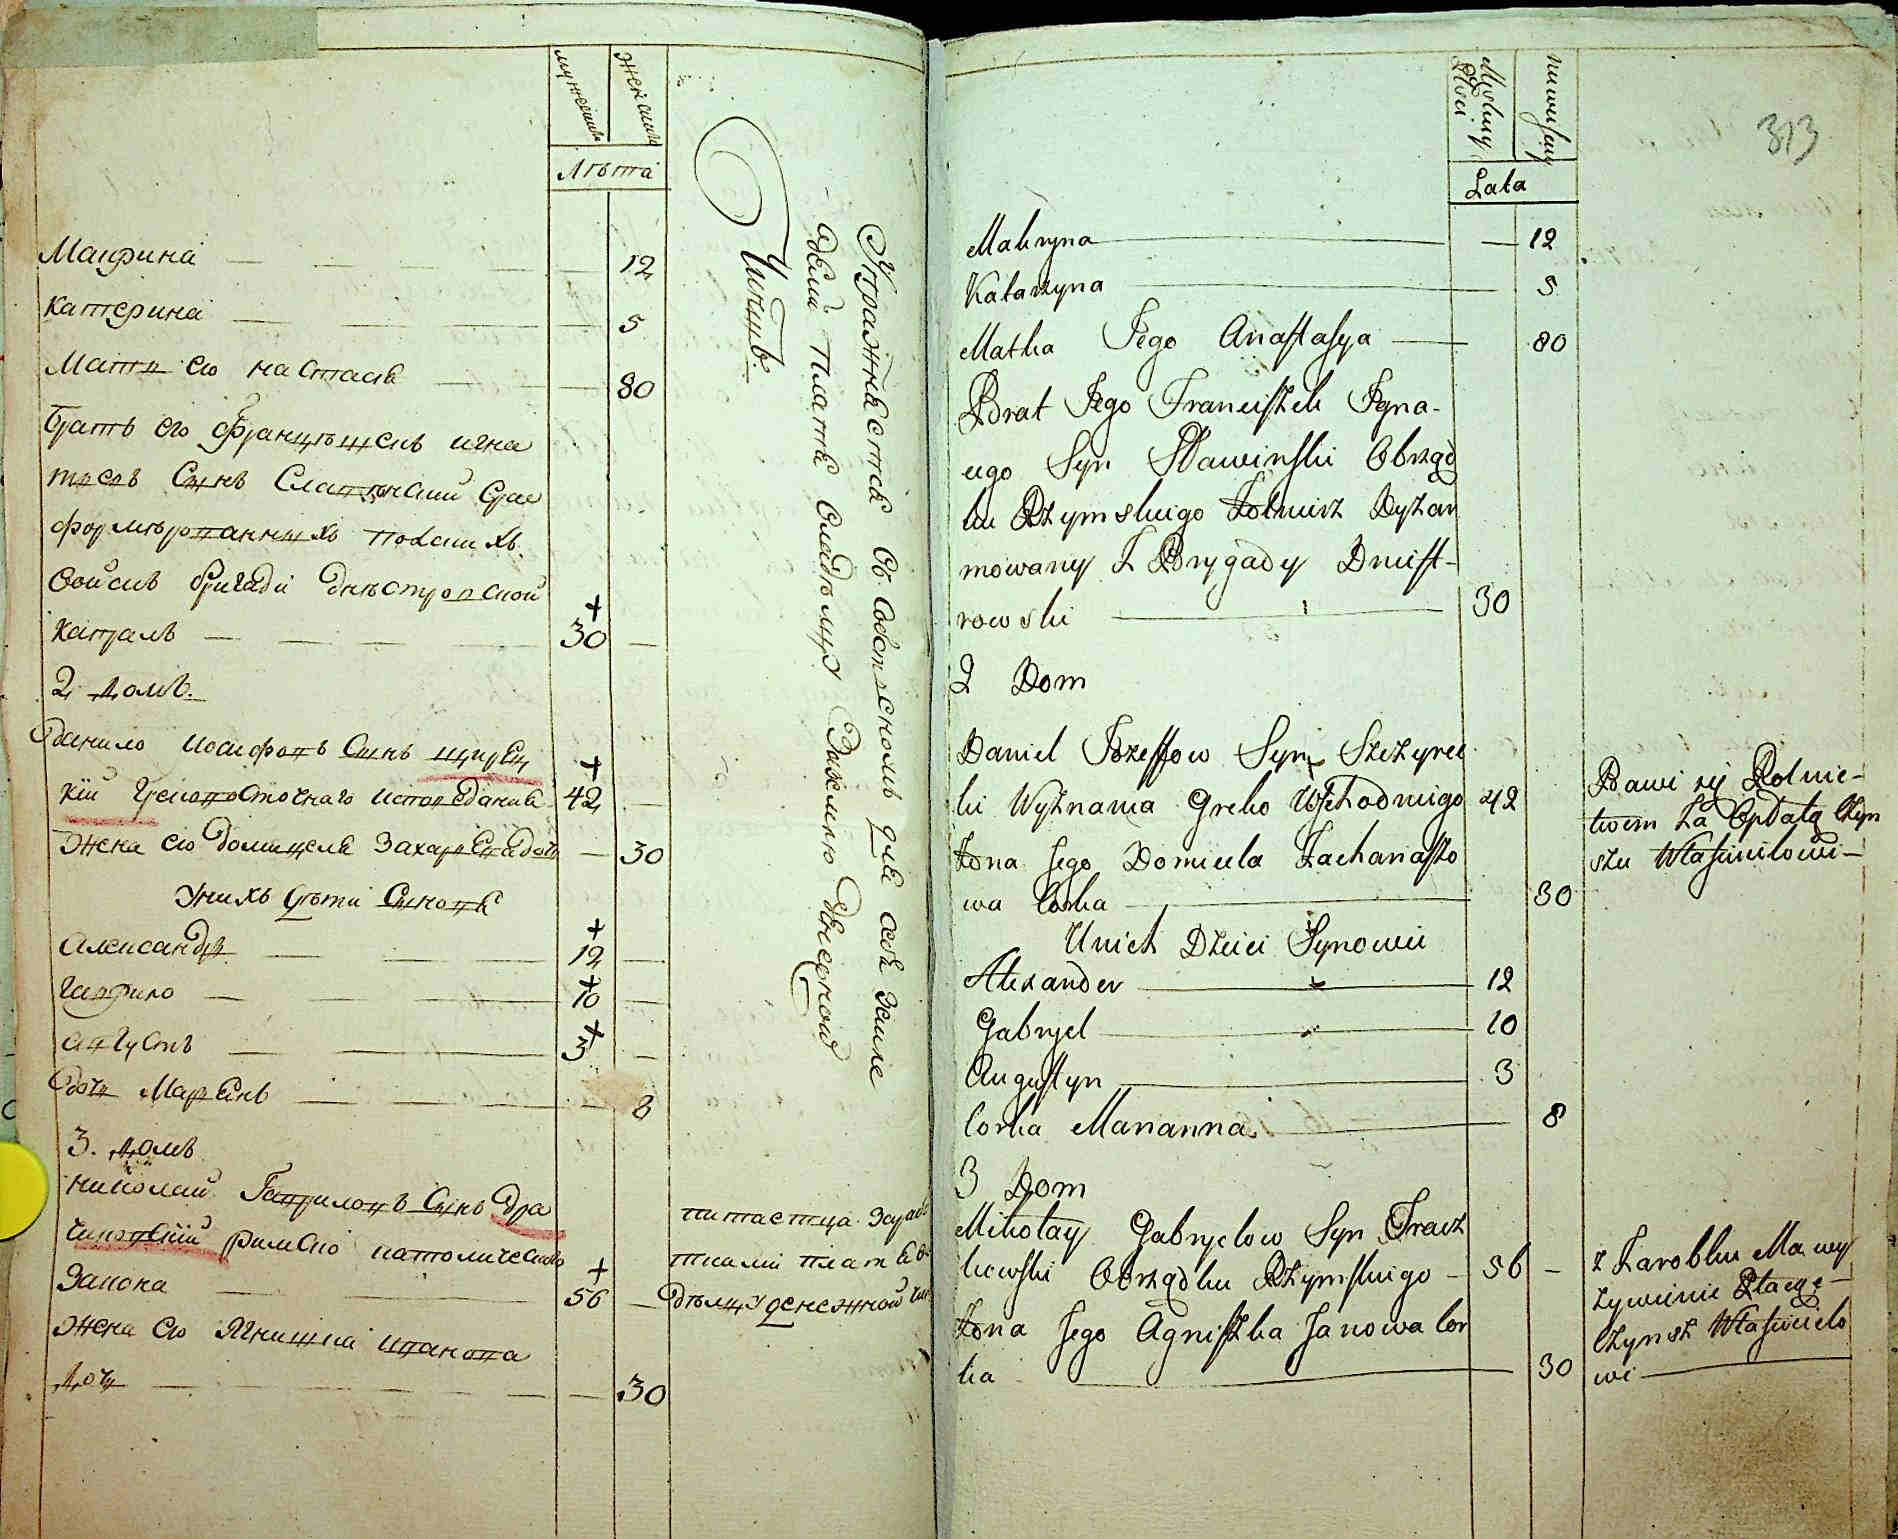 мужескій
женскій
Лѣта
Макрина 12
Катерина 5
Мать его настасія 80
братъ его францѣшекъ игна
тьевъ Сынъ Славѣнскій Рее
формѣрованныхъ полскихъ
войскъ бригади днѣстровской
капралъ 30
2 домъ.
данило иосифовъ Сынъ щирец
кій Грековосточнаго исповеданія 42
жена его домицеля Захар 30
Унихъ дѣти Синовя
Александръ 12
Гаврило 10
августъ 3
дочь Маріянъ 8
3. домъ
николай Гавриловъ Сынъ дра
чковскій римско католическаго
Закона 56
жена его Ягнишка иванова
дочь 30
Упражняется въ собственномъ для себя земле
оделѣ платя владѣлцу Землю денежной
Чиншъ.
питается зарабо
тками платя в
дѣлцу денежной чин
313
Męskiey
Płci
niewiesciey
Lata
Makryna 12
Katarzyna 5
Matka Jego Anastasya 80
Brat Jego Franciszek Igna-
cego Syn Sławinski Obrząd
ku Rzymskiego Żołnierz Ryfor
mowany z Brygady Dniest-
rowski 30
2 Dom
Daniel Jozeffow Syn Szczyrec
ki Wyznania Greko Wschodniego 42
Żona Jego Domicela Zacharaszo
wa Corka 30
Unich Dzieci Synowie
Alexander 12
Gabryel 10
Augustyn 3
Corka Marianna 8
3 Dom
Mikołay Gabryelow Syn Dracz
kowski Obrządku Rzymskiego 56
Żona Jego Agniszka Janowa Cor
ka 30
Bawi się Rolnic-
twem za Opłatą Czyn
szu Włascicielowi
z Zarobku Ma wy
żywienie Płacąc
Czynsz Właścicielo
wi